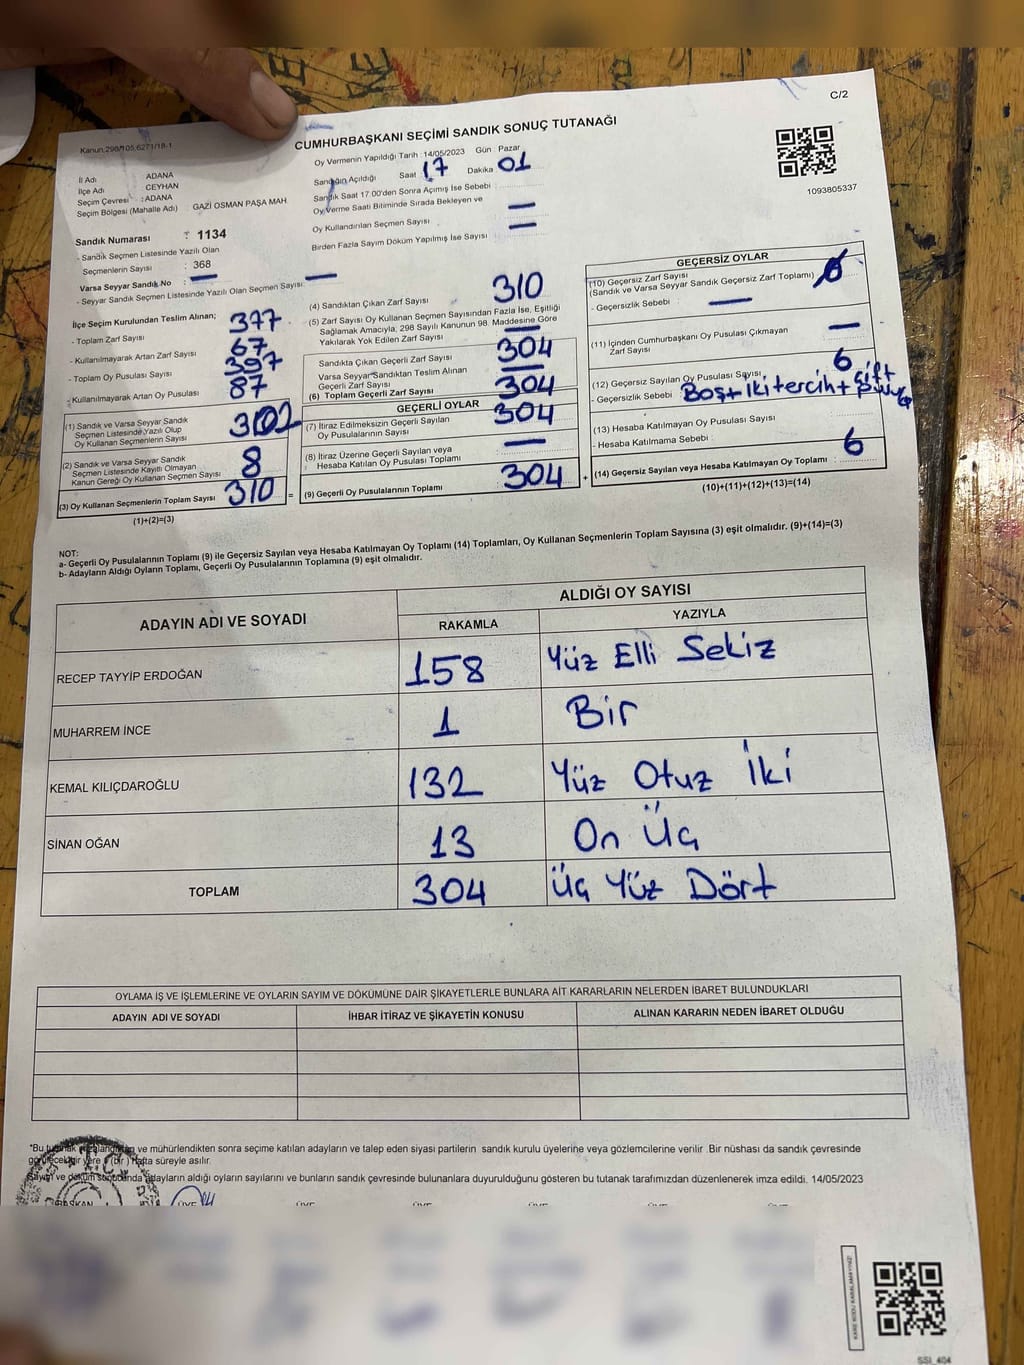 C/2
Kanun,298/105,6271/18-1
CUMHURBAŞKANI SEÇİMİ SANDIK SONUÇ TUTANAĞI
İl Adı : ADANA
İlçe Adı : CEYHAN
Seçim Çevresi : ADANA
Seçim Bölgesi (Mahalle Adı) GAZİ OSMAN PAŞA MAH.
Sandık Numarası : 1134
- Sandık Seçmen Listesinde Yazılı Olan
Seçmenlerin Sayısı : 368
Varsa Seyyar Sandık No : —
- Seyyar Sandık Seçmen Listesinde Yazılı Olan Seçmen Sayısı: —
Oy Vermenin Yapıldığı Tarih : 14/05/2023 Gün : Pazar
Sandığın Açıldığı Saat 17 Dakika 01
Sandık Saat 17.00'den Sonra Açılmış İse Sebebi :
Oy Verme Saati Bitiminde Sırada Bekleyen ve
Oy Kullandırılan Seçmen Sayısı : —
Birden Fazla Sayım Döküm Yapılmış İse Sayısı : —
1093805337
İlçe Seçim Kurulundan Teslim Alınan;
- Toplam Zarf Sayısı : 377
- Kullanılmayarak Artan Zarf Sayısı : 67
- Toplam Oy Pusulası Sayısı : 397
- Kullanılmayarak Artan Oy Pusulası : 87
(1) Sandık ve Varsa Seyyar Sandık
Seçmen Listesinde Yazılı Olup
Oy Kullanan Seçmenlerin Sayısı 302
(2) Sandık ve Varsa Seyyar Sandık
Seçmen Listesinde Kayıtlı Olmayan
Kanun Gereği Oy Kullanan Seçmen Sayısı 8
(3) Oy Kullanan Seçmenlerin Toplam Sayısı 310 =
(1)+(2)=(3)
(4) Sandıktan Çıkan Zarf Sayısı 310
(5) Zarf Sayısı Oy Kullanan Seçmen Sayısından Fazla İse, Eşitliği
Sağlamak Amacıyla, 298 Sayılı Kanunun 98. Maddesine Göre
Yakılarak Yok Edilen Zarf Sayısı : —
Sandıkta Çıkan Geçerli Zarf Sayısı : 304
Varsa Seyyar Sandıktan Teslim Alınan
Geçerli Zarf Sayısı : —
(6) Toplam Geçerli Zarf Sayısı : 304
GEÇERLİ OYLAR
(7) İtiraz Edilmeksizin Geçerli Sayılan
Oy Pusulalarının Sayısı : 304
(8) İtiraz Üzerine Geçerli Sayılan veya
Hesaba Katılan Oy Pusulası Toplamı : —
(9) Geçerli Oy Pusulalarının Toplamı : 304 +
GEÇERSİZ OYLAR
(10) Geçersiz Zarf Sayısı
(Sandık ve Varsa Seyyar Sandık Geçersiz Zarf Toplamı) :
- Geçersizlik Sebebi : —
(11) İçinden Cumhurbaşkanı Oy Pusulası Çıkmayan
Zarf Sayısı : —
(12) Geçersiz Sayılan Oy Pusulası Sayısı : 6
- Geçersizlik Sebebi : Boş+iki tercih+ çift
(13) Hesaba Katılmayan Oy Pusulası Sayısı :
- Hesaba Katılmama Sebebi :
(14) Geçersiz Sayılan veya Hesaba Katılmayan Oy Toplamı : 6
(10)+(11)+(12)+(13)=(14)
NOT:
a- Geçerli Oy Pusulalarının Toplamı (9) ile Geçersiz Sayılan veya Hesaba Katılmayan Oy Toplamı (14) Toplamları, Oy Kullanan Seçmenlerin Toplam Sayısına (3) eşit olmalıdır. (9)+(14)=(3)
b- Adayların Aldığı Oyların Toplamı, Geçerli Oy Pusulalarının Toplamına (9) eşit olmalıdır.
ADAYIN ADI VE SOYADI ALDIĞI OY SAYISI
RAKAMLA YAZIYLA
RECEP TAYYİP ERDOĞAN 158 Yüz Elli Sekiz
MUHARREM İNCE 1 Bir
KEMAL KILIÇDAROĞLU 132 Yüz Otuz İki
SİNAN OĞAN 13 On Üç
TOPLAM 304 Üç Yüz Dört
OYLAMA İŞ VE İŞLEMLERİNE VE OYLARIN SAYIM VE DÖKÜMÜNE DAİR ŞİKAYETLERLE BUNLARA AİT KARARLARIN NELERDEN İBARET BULUNDUKLARI
ADAYIN ADI VE SOYADI İHBAR İTİRAZ VE ŞİKAYETİN KONUSU ALINAN KARARIN NEDEN İBARET OLDUĞU
*Bu tutanak ve mühürlendikten sonra seçime katılan adayların ve talep eden siyasi partilerin sandık kurulu üyelerine veya gözlemcilerine verilir. Bir nüshası da sandık çevresinde
görülecek bir yere 1 (bir) hafta süreyle asılır.
Sayım ve döküm sonucunda adayların aldığı oyların sayılarını ve bunların sandık çevresinde bulunanlara duyurulduğunu gösteren bu tutanak tarafımızdan düzenlenerek imza edildi. 14/05/2023
BAŞKAN ÜYE ÜYE ÜYE ÜYE ÜYE ÜYE
KARE KODU KARALAMAYINIZ!
SSI_404